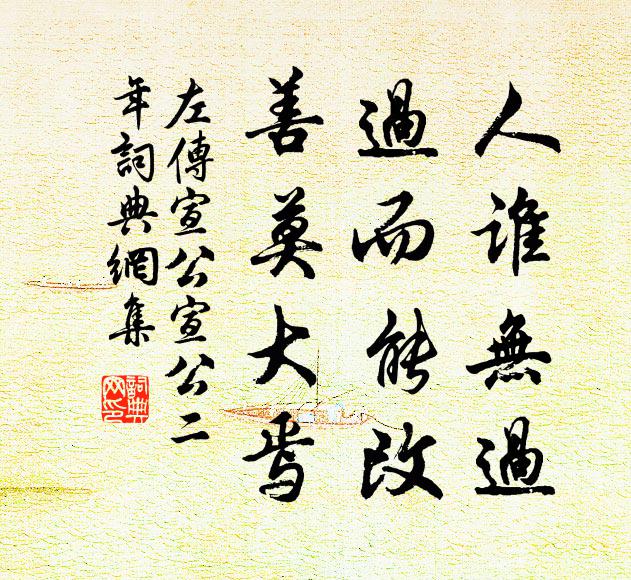 人誰無過
過而能改
善莫大焉
左傳宣公宣公二
年詞典網集
詞典网印